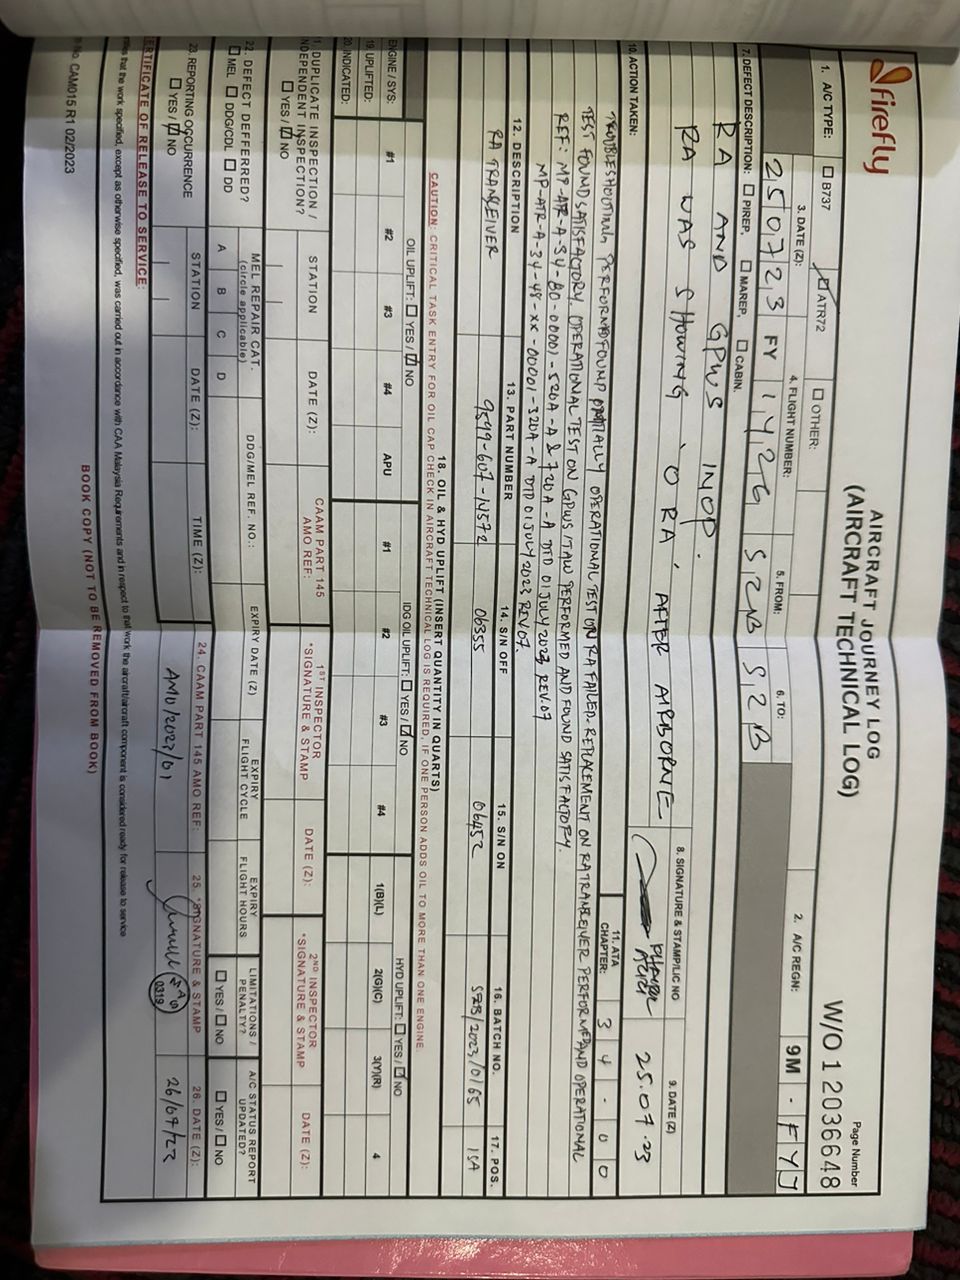 firefly
AIRCRAFT JOURNEY LOG
(AIRCRAFT TECHNICAL LOG)
W/O 1 2036648
Page Number
1. A/C TYPE: B737 ATR72 OTHER:
2. A/C REGN: 9M - FYJ
3. DATE (Z): 4. FLIGHT NUMBER: 5. FROM: 6. TO:
250723 FY 1426 SZNB SZB
7. DEFECT DESCRIPTION: PIREP. MAREP. CABIN.
8. SIGNATURE & STAMP/LIC NO 9. DATE (Z)
RA AND GPWS INOP.
RA WAS SHOWING 'O RA' AFTER AIRBORNE
25.07.23
10. ACTION TAKEN:
11. ATA CHAPTER: 34-00
TROUBLESHOOTING PERFORMED FOUND PARTIALLY OPERATIONAL TEST ON RA FAILED. REPLACEMENT ON RA TRANSEIVER PERFORMED AND OPERATIONAL
TEST FOUND SATISFACTORY. OPERATIONAL TEST ON GPWS/TAW PERFORMED AND FOUND SATISFACTORY.
REF: MP-ATR-A-34-80-00001-520A-A & 720A-A DTD 01 JULY 2023 REV.07
MP-ATR-A-34-48-XX-00001-320A-A DTD 01 JULY 2023 REV 07.
12. DESCRIPTION 13. PART NUMBER 14. S/N OFF 15. S/N ON 16. BATCH NO. 17. POS.
RA TRANSEIVER 9599-607-14572 06355 06452 SZB/2023/0165 1SA
18. OIL & HYD UPLIFT (INSERT QUANTITY IN QUARTS)
CAUTION: CRITICAL TASK ENTRY FOR OIL CAP CHECK IN AIRCRAFT TECHNICAL LOG IS REQUIRED, IF ONE PERSON ADDS OIL TO MORE THAN ONE ENGINE.
OIL UPLIFT: YES / NO IDG OIL UPLIFT: YES / NO HYD UPLIFT: YES / NO
ENGINE / SYS: #1 #2 #3 #4 APU #1 #2 #3 #4 1(B)(L) 2(G)(C) 3(Y)(R) 4
19. UPLIFTED:
20. INDICATED:
DUPLICATE INSPECTION / INDEPENDENT INSPECTION? YES / NO
STATION DATE (Z): CAAM PART 145 AMO REF: 1ST INSPECTOR *SIGNATURE & STAMP DATE (Z): 2ND INSPECTOR *SIGNATURE & STAMP DATE (Z):
22. DEFECT DEFFERED? MEL DDG/CDL DD
MEL REPAIR CAT. (circle applicable) A B C D
DDG/MEL REF. NO.: EXPIRY DATE (Z) EXPIRY FLIGHT CYCLE EXPIRY FLIGHT HOURS LIMITATIONS / PENALTY? YES / NO A/C STATUS REPORT UPDATED? YES / NO
23. REPORTING OCCURRENCE YES / NO
STATION DATE (Z): TIME (Z): 24. CAAM PART 145 AMO REF: 25. *SIGNATURE & STAMP 26. DATE (Z):
AMO/2023/01 0319 26/07/23
CERTIFICATE OF RELEASE TO SERVICE:
that the work specified, except as otherwise specified, was carried out in accordance with CAA Malaysia Requirements and in respect to that work the aircraft/aircraft component is considered ready for release to service
No. CAM015 R1 02/2023
BOOK COPY (NOT TO BE REMOVED FROM BOOK)